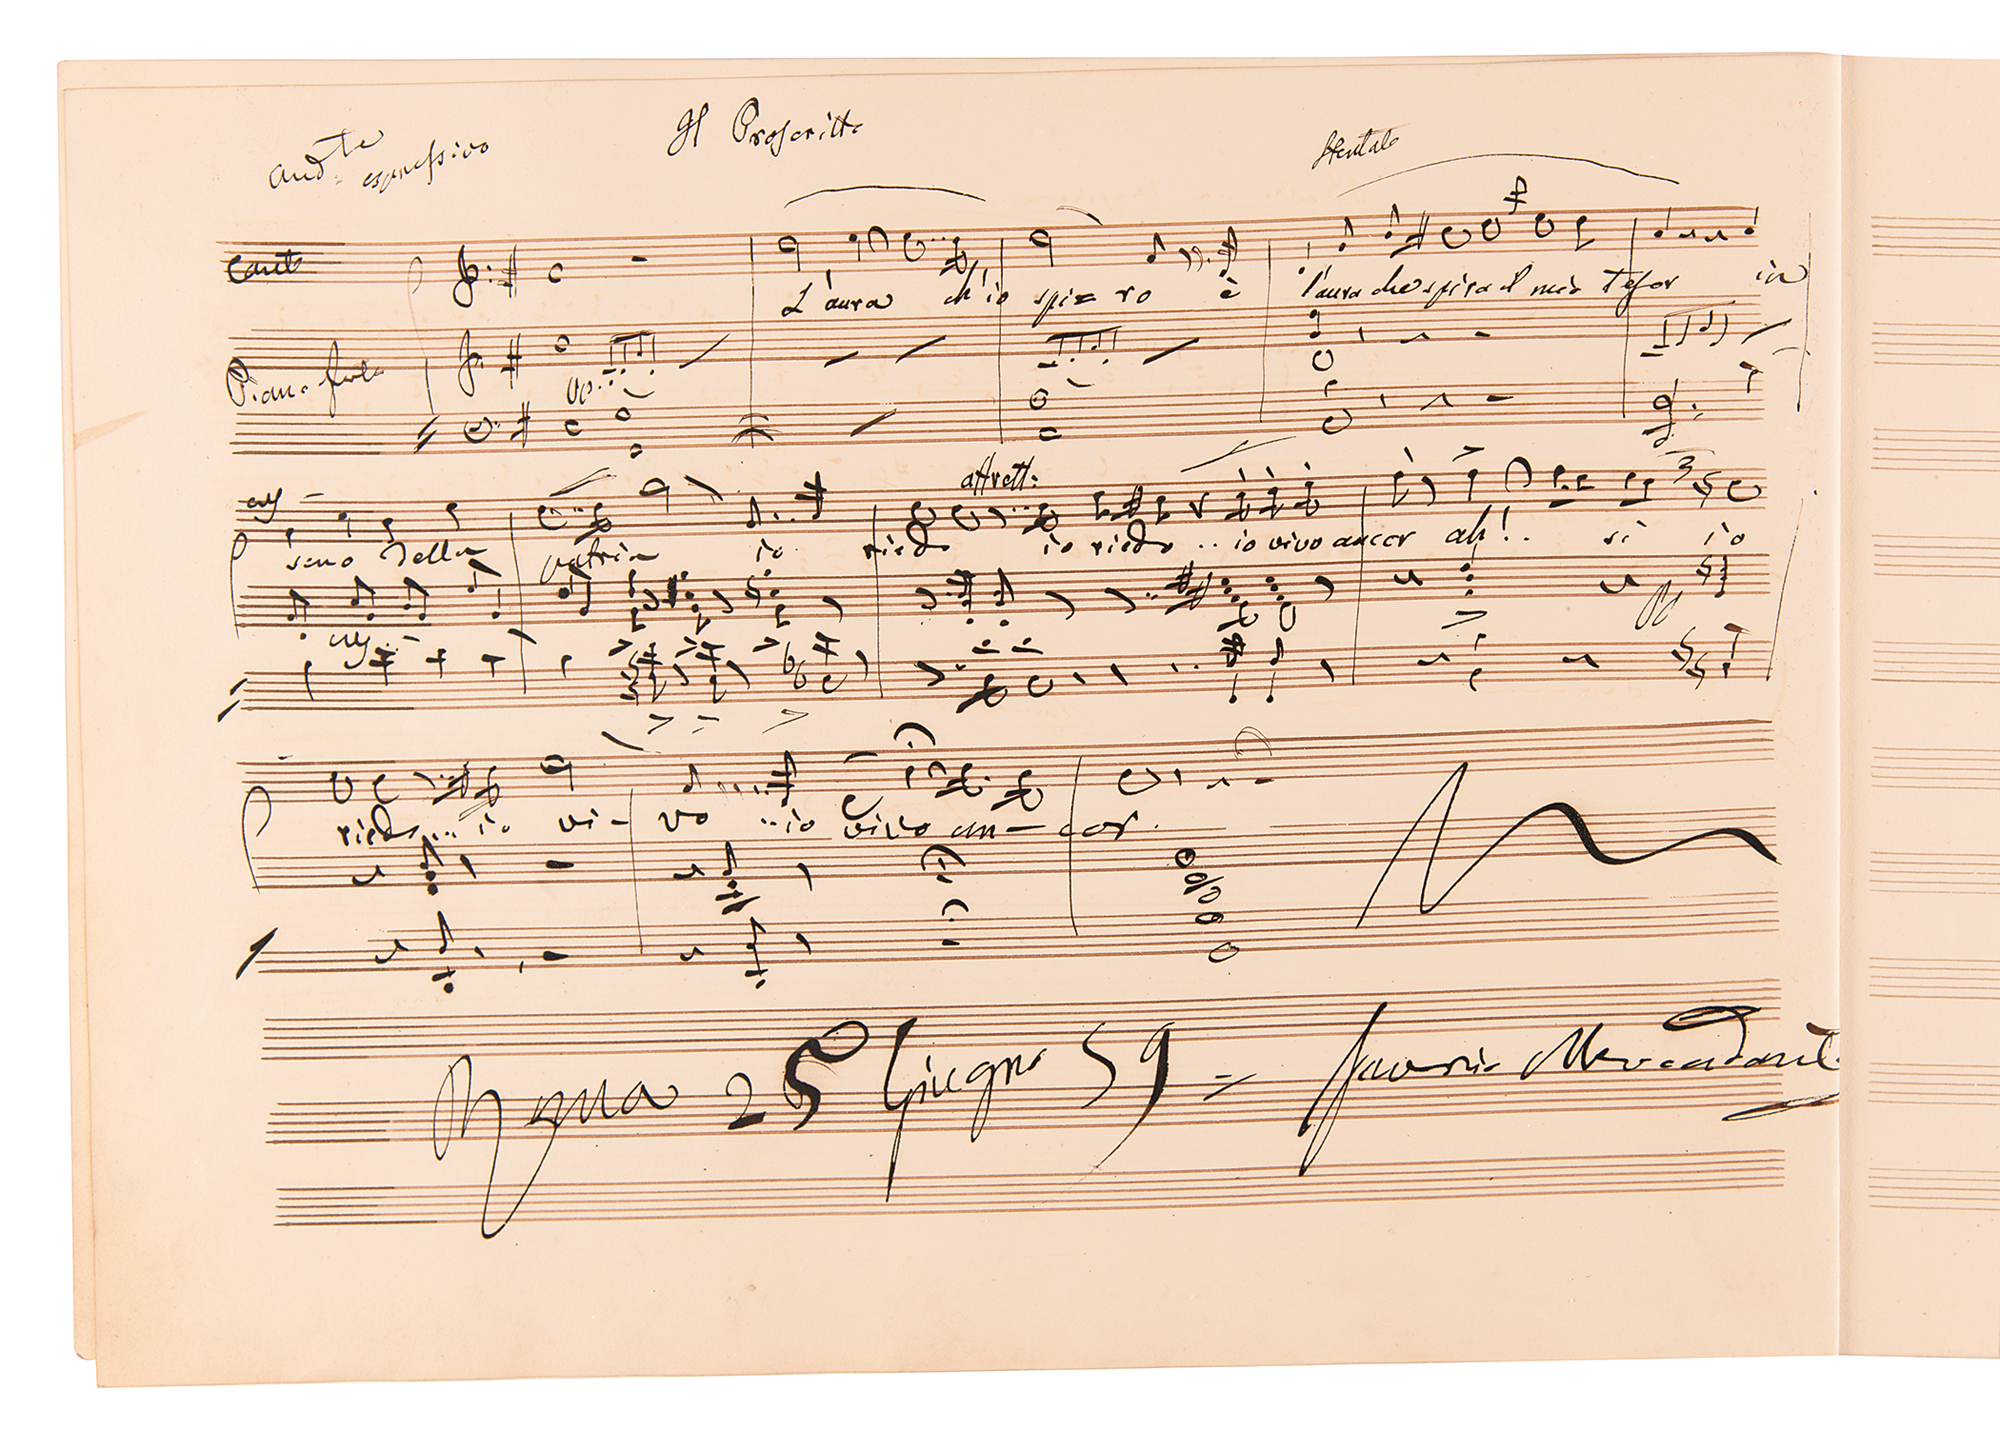 Il Proscritto
And.te espressivo
Stentato
Canto
L'aura ch'io spi= ro è l'aura che spira il mio tesor in
Piano forte
pp
affrett:
seno della patria io riedo io riedo .. io vivo ancor ah! . si io
riedo ... io vi- vo .. io vivo an- cor.
25 Giugno 59 = Saverio Mercadante